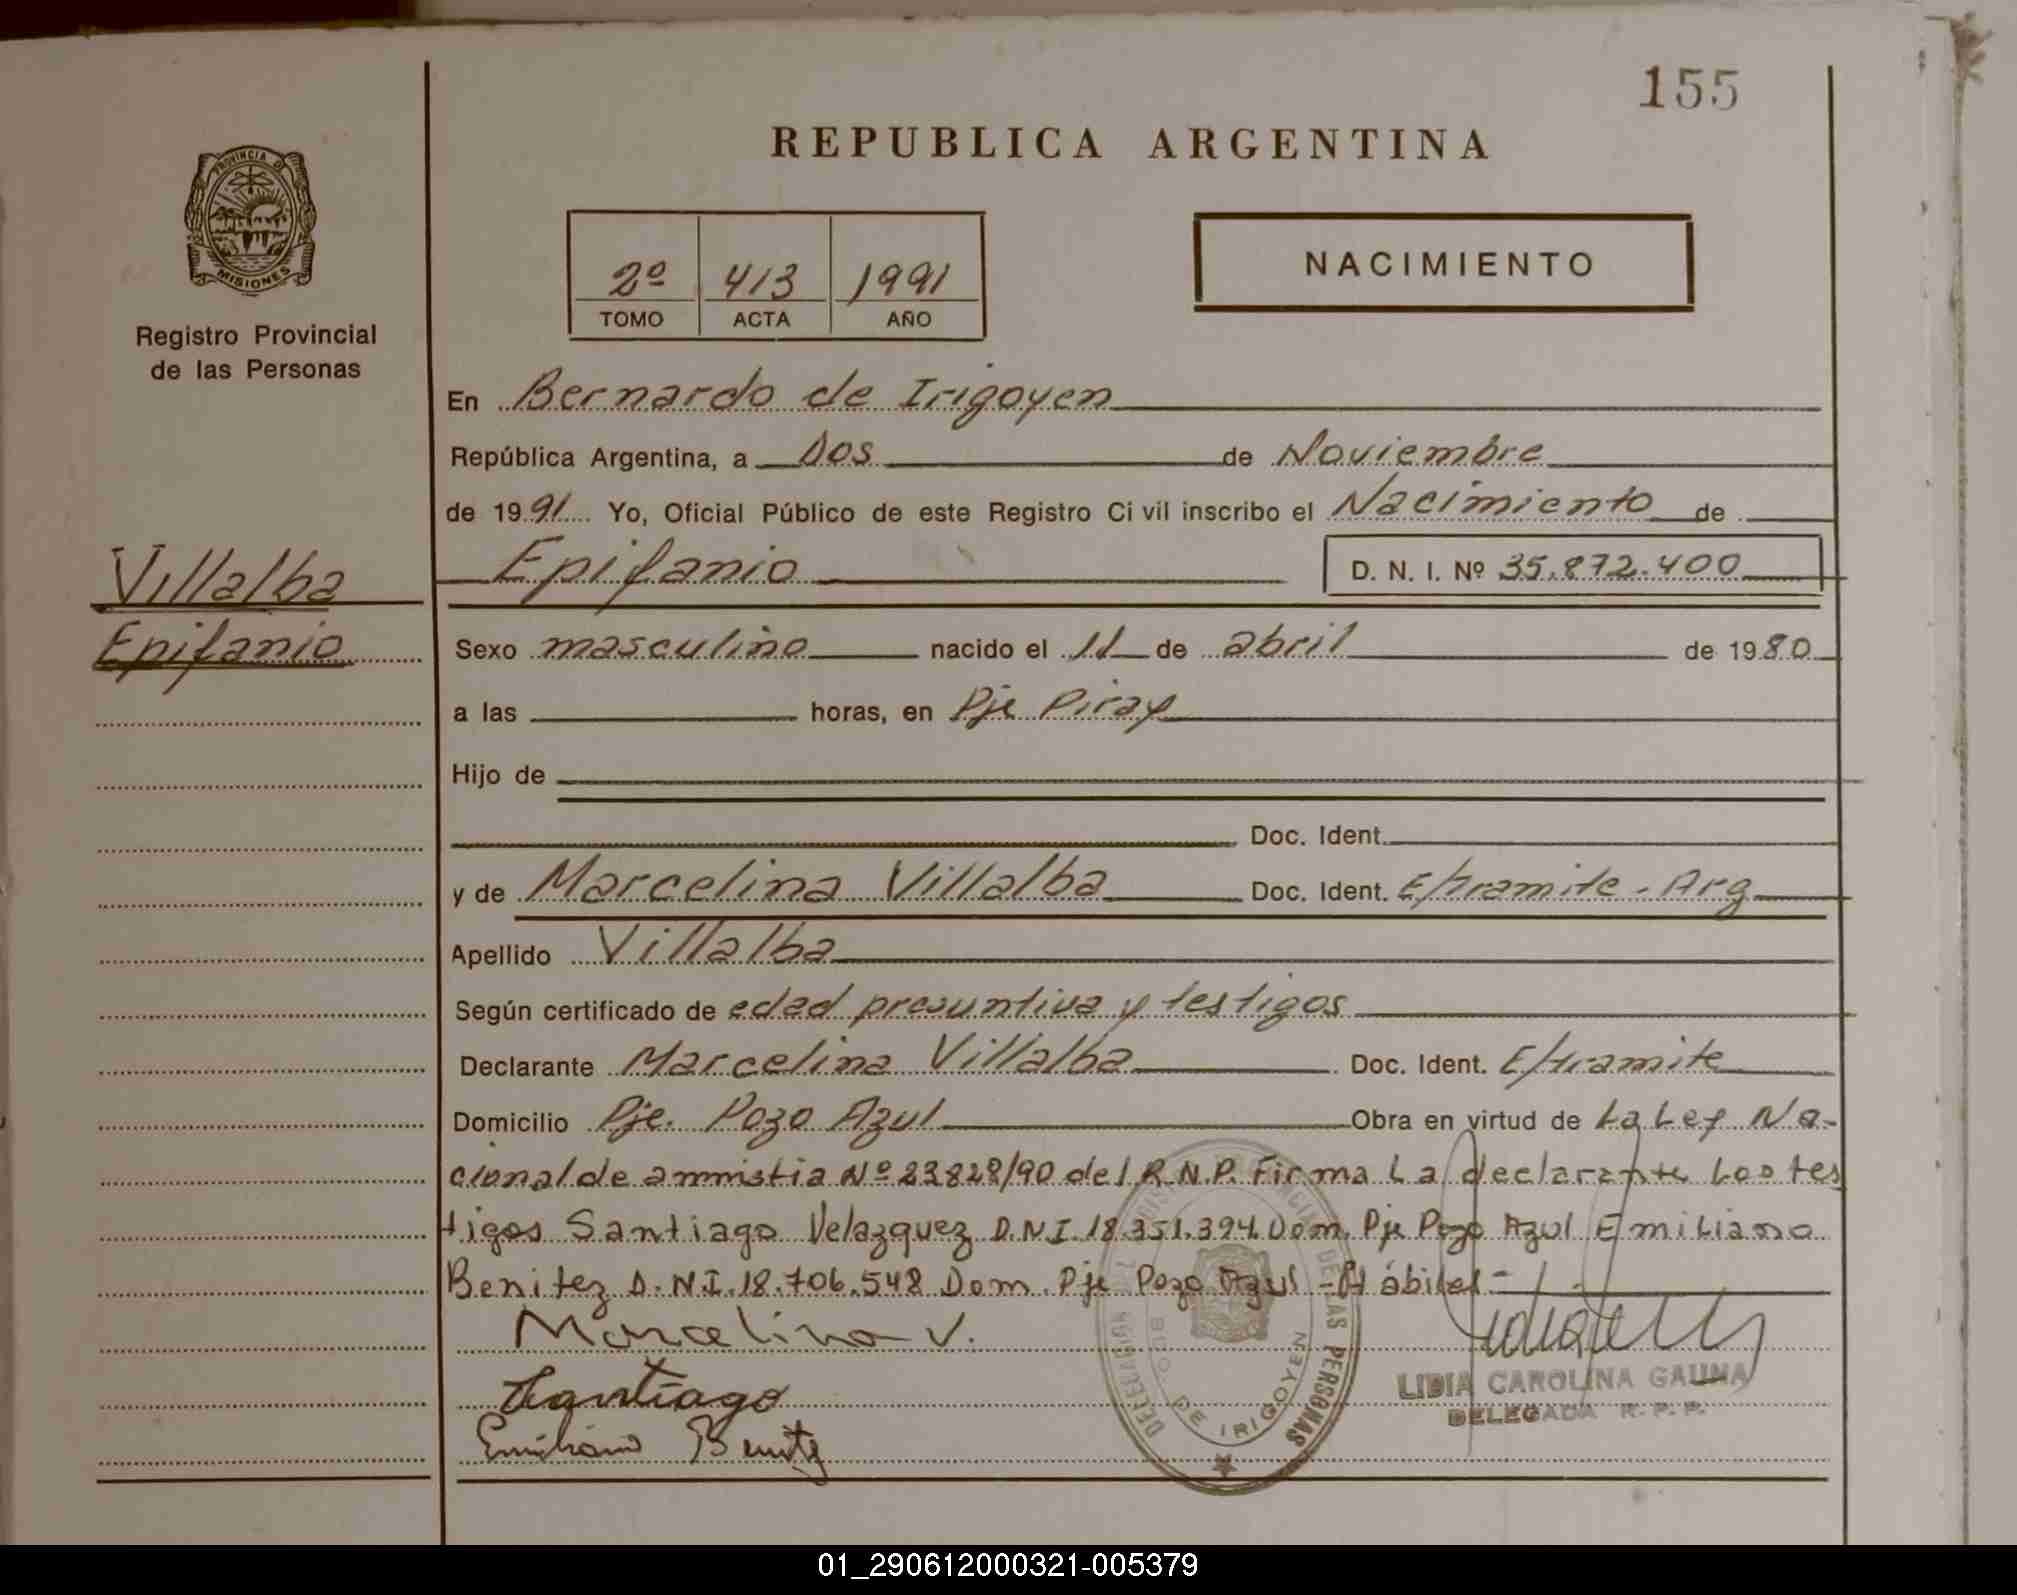 155
REPUBLICA ARGENTINA
PROVINCIA DE
MISIONES
Registro Provincial
de las Personas
2º 413 1991
TOMO ACTA AÑO
NACIMIENTO
En Bernardo de Irigoyen
República Argentina, a Dos de Noviembre
de 1991 Yo, Oficial Público de este Registro Civil inscribo el Nacimiento de
Villalba
Epifanio
Epifanio D. N. I. Nº 35.872.400
Sexo masculino nacido el 11 de abril de 1980
a las horas, en Pje Piray
Hijo de
Doc. Ident.
y de Marcelina Villalba Doc. Ident. E/tramite - Arg
Apellido Villalba
Según certificado de edad presuntiva y testigos
Declarante Marcelina Villalba Doc. Ident. E/tramite
Domicilio Pje. Pozo Azul Obra en virtud de La Ley Na-
cional de amnistia Nº 23828/90 del R.N.P. Firma La declarante Los tes
tigos Santiago Velazquez D.N.I. 18.351.394. Dom. Pje Pozo Azul Emiliano
Benitez D.N.I. 18.706.548 Dom. Pje Pozo Azul - Hábiles -
Marcelina V.
Santiago
Emiliano Benitez
DE LAS PERSONAS
DE IRIGOYEN
LIDIA CAROLINA GAUNA
DELEGADA R. P. P.
01_290612000321-005379